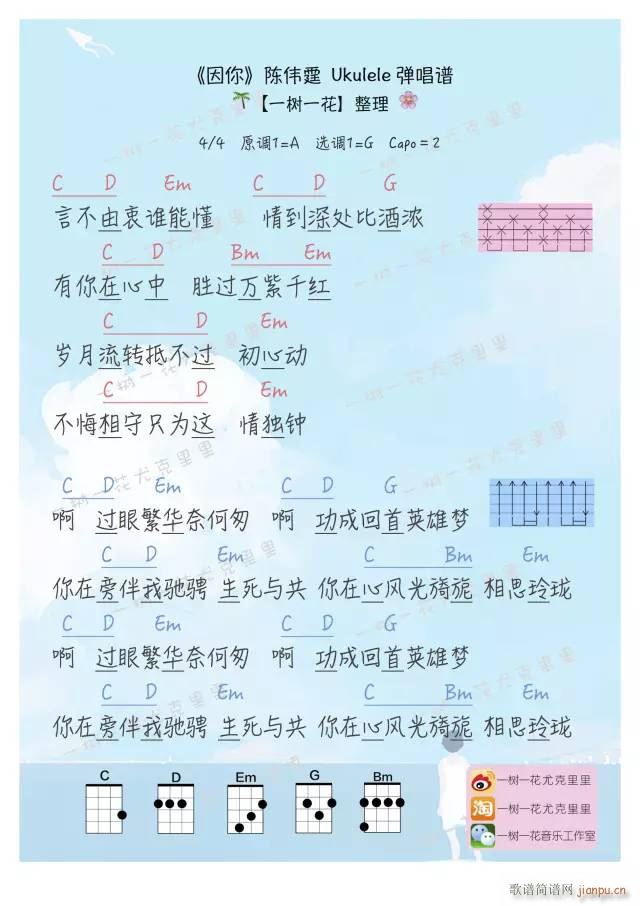 《因你》陈伟霆 Ukulele 弹唱谱
【一树一花】整理
4/4 原调1=A 选调1=G Capo=2
C D Em C D G
言不由衷谁能懂 情到深处比酒浓
C D Bm Em
有你在心中 胜过万紫千红
C D Em
岁月流转抵不过 初心动
C D Em
不悔相守只为这 情独钟
C D Em C D G
啊 过眼繁华奈何匆 啊 功成回首英雄梦
C D Em C Bm Em
你在旁伴我驰骋 生死与共 你在心风光旖旎 相思玲珑
C D Em C D G
啊 过眼繁华奈何匆 啊 功成回首英雄梦
C D Em C Bm Em
你在旁伴我驰骋 生死与共 你在心风光旖旎 相思玲珑
C D Em G Bm
一树一花尤克里里
淘 一树一花尤克里里
一树一花音乐工作室
歌谱简谱网 jianpu.cn